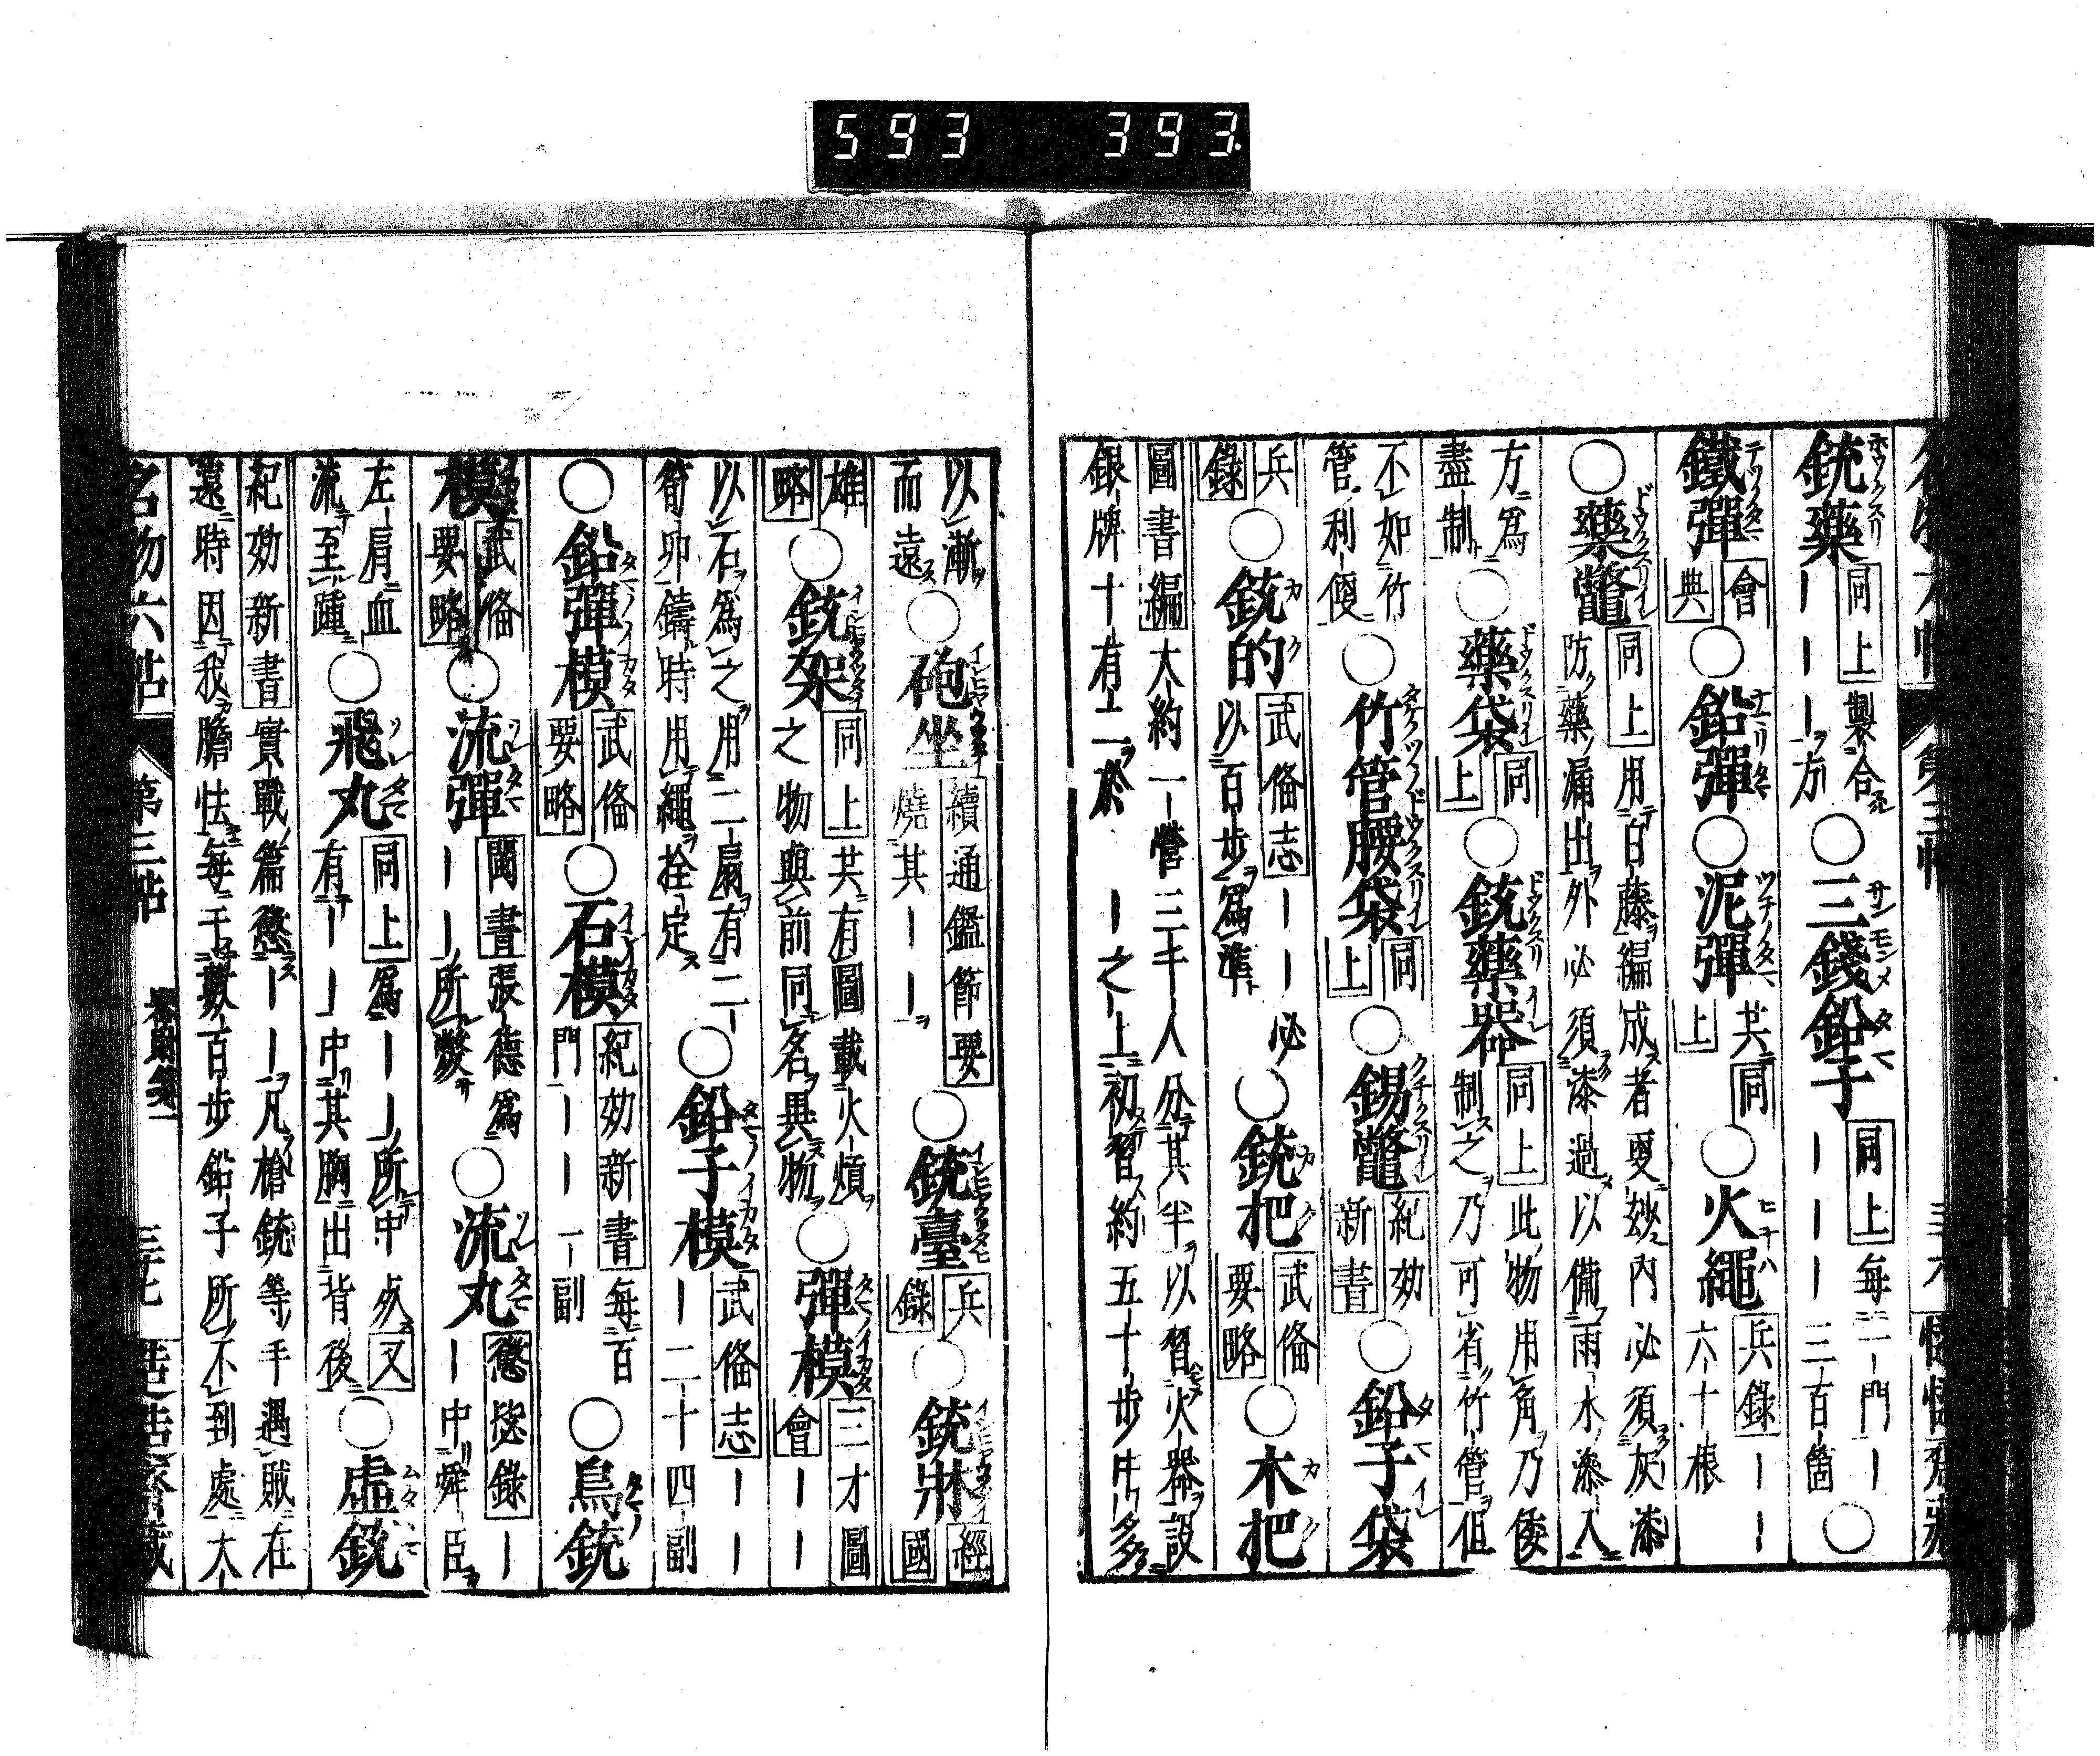 593 393
銃藥 同上製合
———方
○三錢鉛子 同上每一門—
———三百箇 ○
鐵彈 會典 ○鉛彈 ○泥彈 共同上 ○火繩 兵錄——
六十根
○藥鼈 同上用白藤編成者更妙內必須灰漆
防藥漏出外必須漆過以備雨水滲入
方爲
盡制 ○藥袋 同上 ○銃藥器 同上此物用角乃倭
制之乃可省竹管但
不如竹
管利便 ○竹管腰袋 同上 ○錫鼈 紀効新書 ○鉛子袋
兵錄 ○銃的 武俻志——必
以百步爲準 ○銃把 武俻要略 ○木把
圖書編大約一營三千人分其半以習火器設
銀牌十有二於—之上初習約五十步中多
以漸
而遠 ○砲坐 續通鑑節要
燒其—— ○銃臺 兵錄 ○銃牀 經國
雄略 ○銃架 同上共有圖載火熕
之物與前同名異物 ○彈模 三才圖會——
以石爲之用二扇有二
筍卯鑄時用繩拴定 ○鉛子模 武俻志——
—二十四副
○鉛彈模 武俻要略 ○石模 紀効新書每百
門——一副 ○鳥銃
模 武俻要略 ○流彈 閩書張德爲
——所斃 ○流丸 懲毖錄—
—中舜臣
左肩血
流至踵 ○飛丸 同上爲——所中死又
有——中其胸出背後 ○虛銃
紀効新書實戰篇懲——凡槍銃等手遇賊在
遠時因我膽怯每于數百步鉛子所不到處大
名物六帖 第三帖 器財箋一 三十七